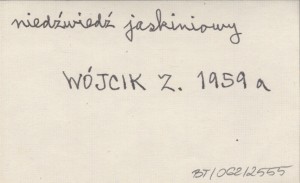 niedźwiedź jaskiniowy
WÓJCIK Z. 1959a
BT/OG2/2555